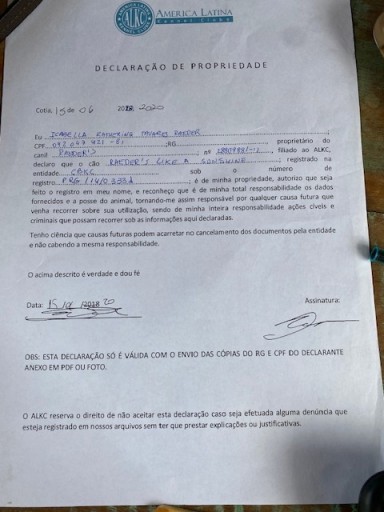 ALKC
AMERICA LATINA
KENNEL CLUBE
DECLARAÇÃO DE PROPRIEDADE
Cotia, 15 de 06 2018, 2020
Eu ISABELLA KATHERINA TAVARES RAEDER ;
CPF ;RG ; proprietário do
canil RAEDER'S ; nº , filiado ao ALKC,
declaro que o cão RAEDER'S LIKE A ; registrado na
entidade CBKC sob o número de
registro ; é de minha propriedade, autorizo que seja
feito o registro em meu nome, e reconheço que é de minha total responsabilidade os dados
fornecidos e a posse do animal, tornando-me assim responsável por qualquer causa futura que
venha recorrer sobre sua utilização, sendo de minha inteira responsabilidade ações cíveis e
criminais que possam recorrer sob as informações aqui declaradas.
Tenho ciência que causas futuras podem acarretar no cancelamento dos documentos pela entidade
e não cabendo a mesma responsabilidade.
O acima descrito é verdade e dou fé
Data: 15/06/2018 20
Assinatura:
OBS: ESTA DECLARAÇÃO SÓ É VÁLIDA COM O ENVIO DAS CÓPIAS DO RG E CPF DO DECLARANTE
ANEXO EM PDF OU FOTO.
O ALKC reserva o direito de não aceitar esta declaração caso seja efetuada alguma denúncia que
esteja registrado em nossos arquivos sem ter que prestar explicações ou justificativas.